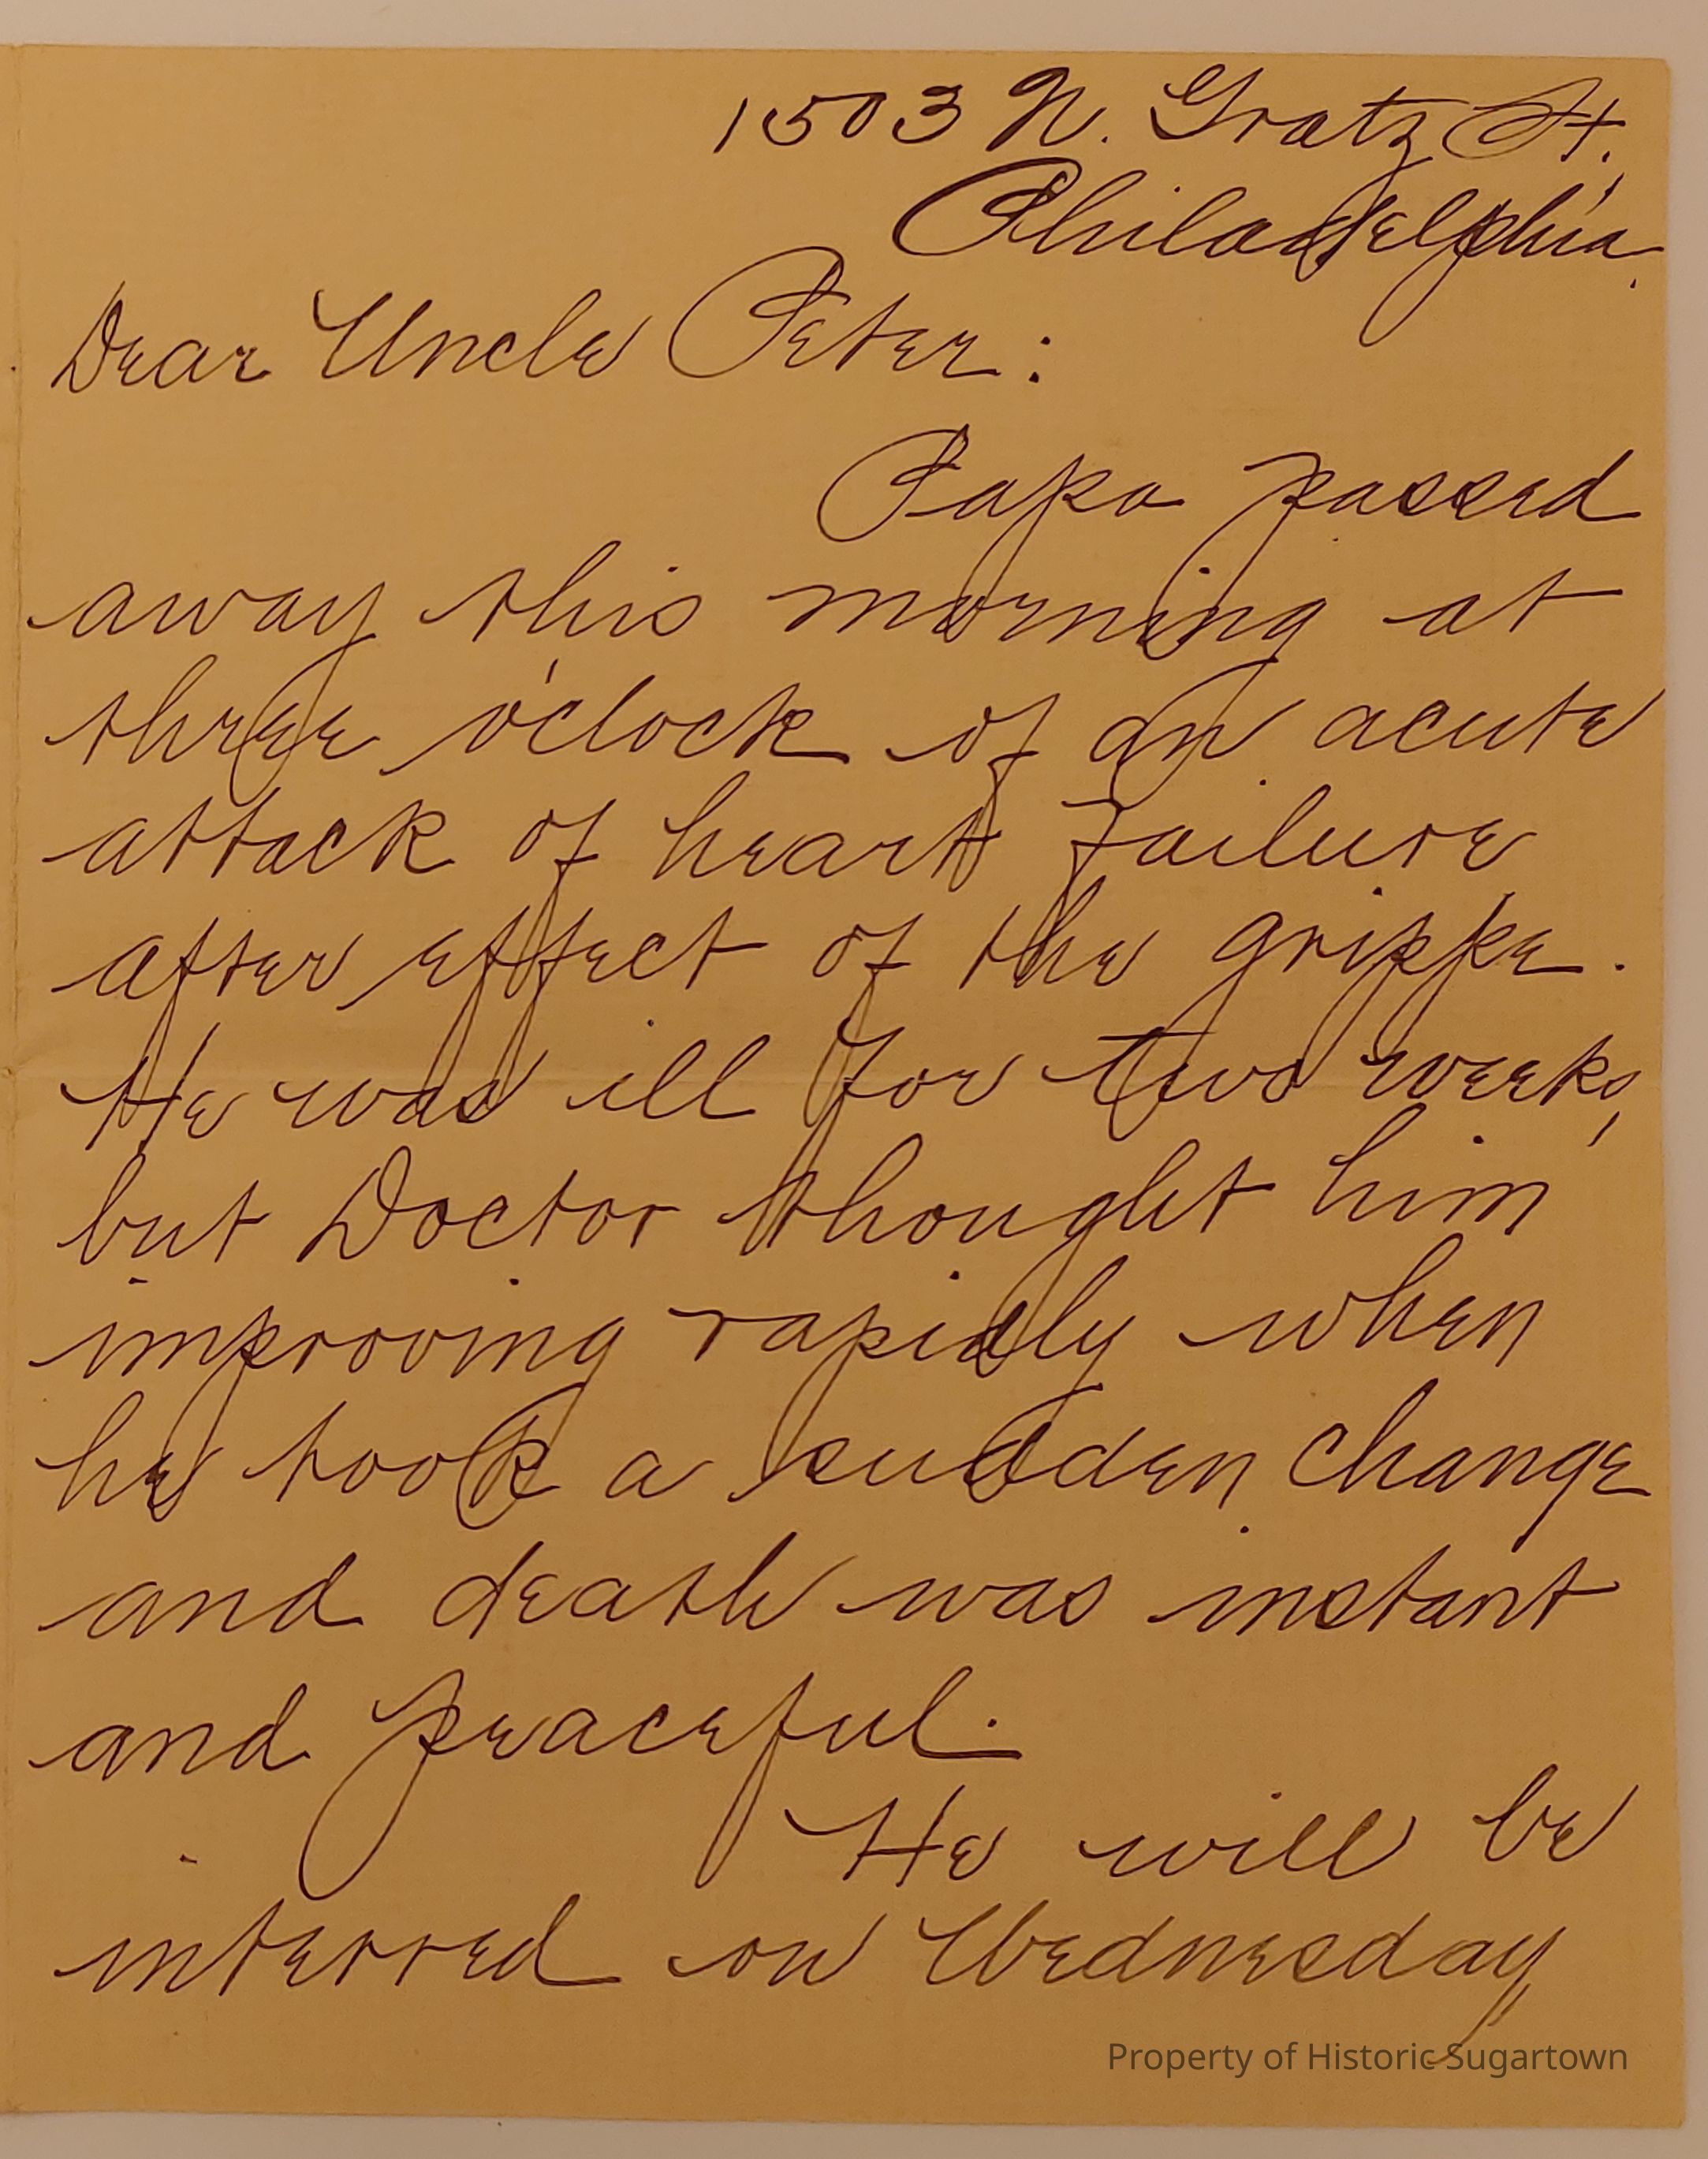 1503 N. Gratz St.,
Philadelphia.
Dear Uncle Peter:
Papa passed
away this morning at
three o'clock of an acute
attack of heart failure
after effect of the grippe.
He was ill for two weeks,
but Doctor thought him
improving rapidly when
he took a sudden change
and death was instant
and peaceful.
He will be
interred on Wednesday
Property of Historic Sugartown